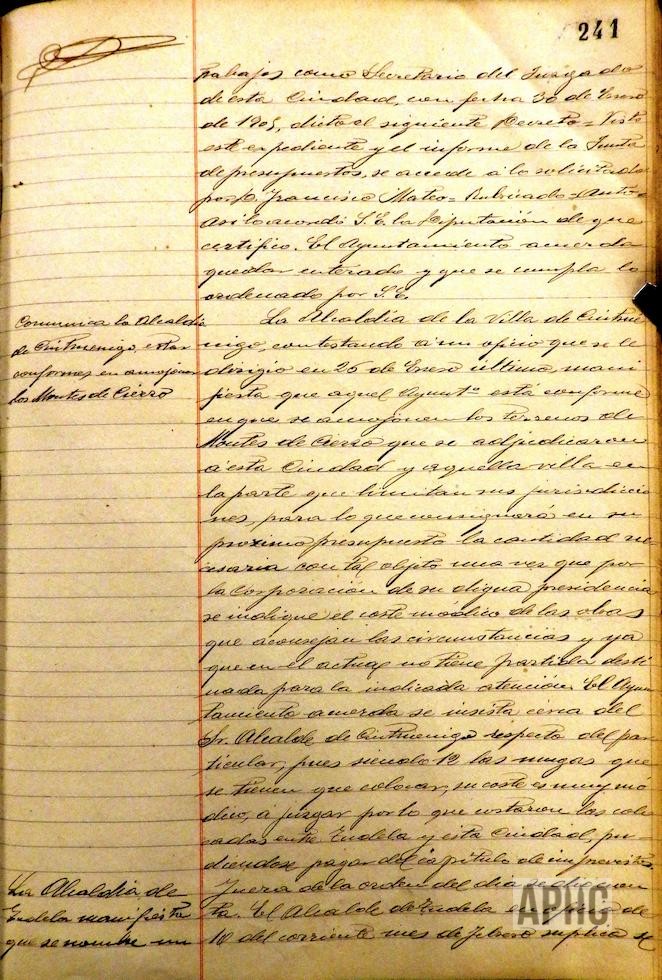 241
trabajos como Secretario del Juzgado
de esta Ciudad, con fecha 30 de Enero
de 1905, dictó el siguiente Decreto = Visto
este expediente y el informe de la Junta
de presupuestos, se accede á lo solicitado
por D. Francisco Mateo = Rubricado =
Así lo acordó S.E. la Diputación de que
certifico. El Ayuntamiento acuerda
quedar enterado y que se cumpla lo
ordenado por S.E.
Comunica la Alcaldia
de Cintruenigo, estar
conformes en amojonar
los Montes de Cierzo
La Alcaldia de la Villa de Cintrue
nigo, contestando á un oficio que se le
dirigió en 25 de Enero último, mani
fiesta que aquel Ayuntº está conforme
en que se amojonen los terrenos de
Montes de Cierzo que se adjudicaron
á esta Ciudad y aquella villa en
la parte que limitan sus jurisdiccio
nes, para lo que consignará en su
proximo presupuesto la cantidad ne
cesaria con tal objeto una vez que por
la Corporación de su digna presidencia
se indique el coste módico de las obras
que aconsejan las circunstancias y ya
que en el actual no tiene partida desti
nada para la indicada atención. El Ayun
tamiento acuerda se insista cerca del
Sr. Alcalde de Cintruenigo respecto del par
ticular, pues siendo 12 las mugas que
se tienen que colocar, su coste es muy mó
dico, á juzgar por lo que costaron las colo
cadas entre Tudela y esta Ciudad, pu
diendose pagar del capítulo de imprevistos.
La Alcaldia de
Tudela manifiesta
que se nombre un
Fuera de la orden del dia se dió cuen
ta. El Alcalde de Tudela de
10 del corriente mes de Febrero suplica se
APNC